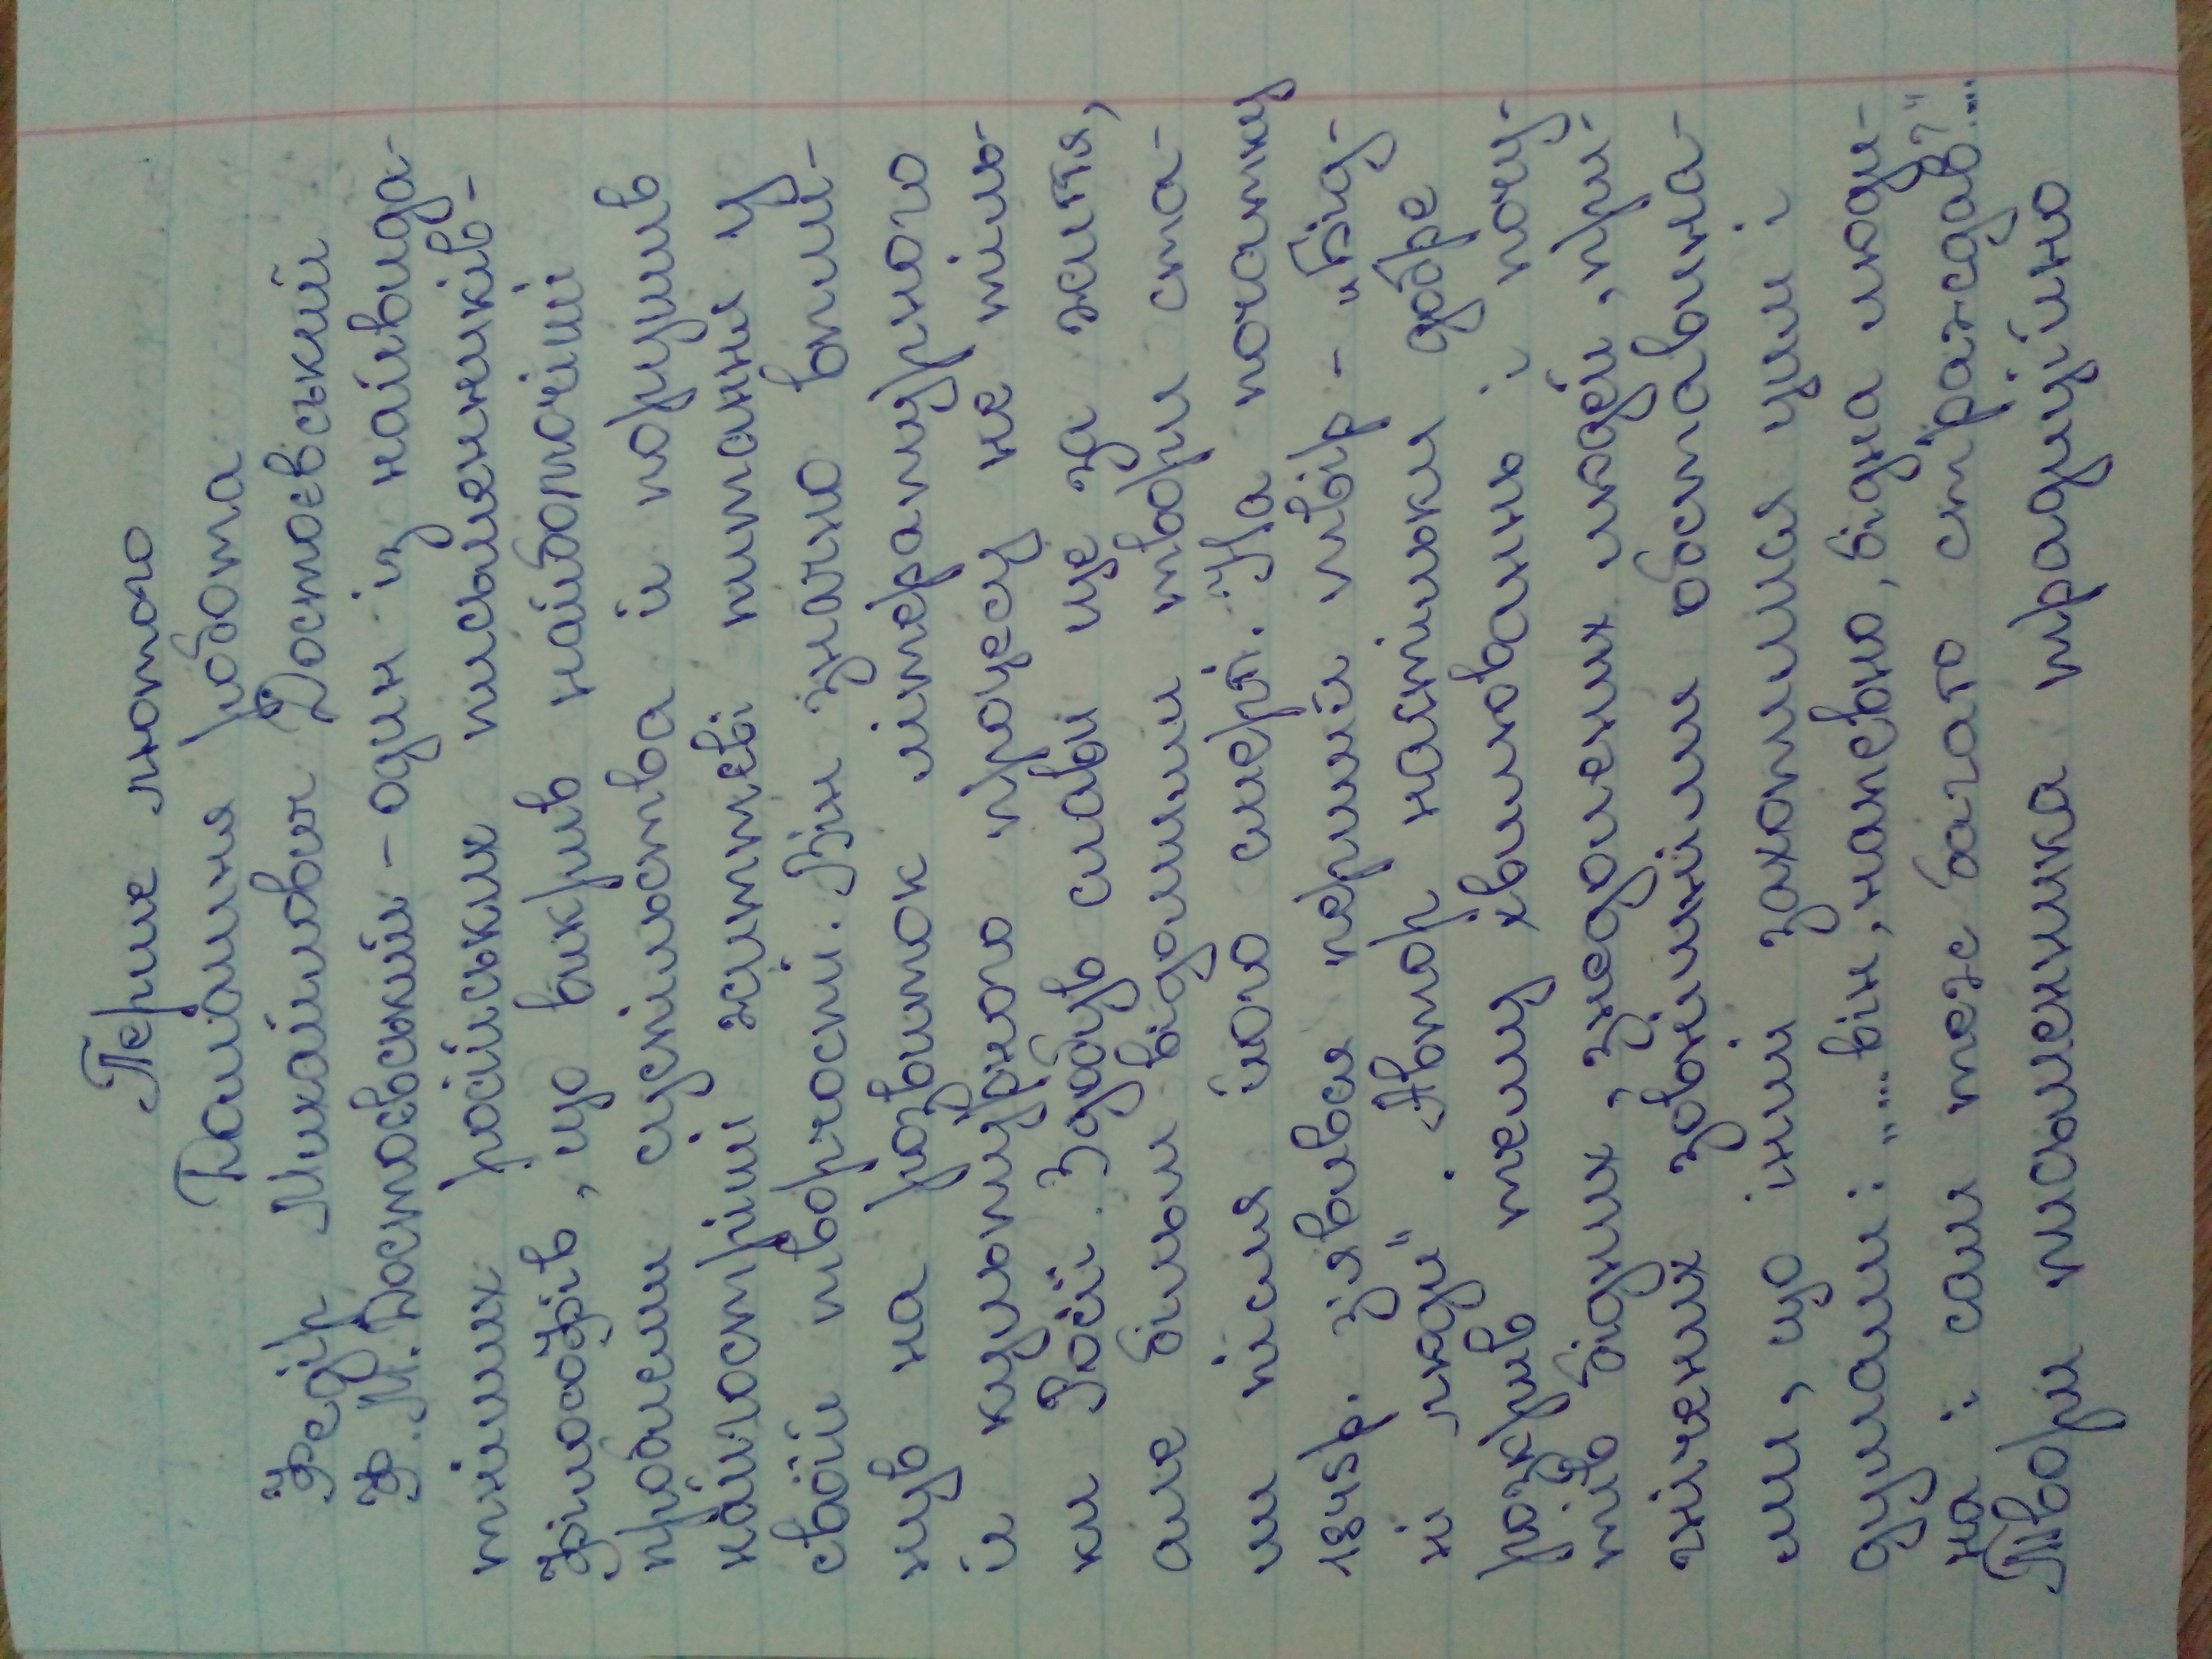 Перше лютого
Домашня робота
Федір Михайлович Достоєвський
Ф.М.Достоєвський - один із найвида-
тніших російських письменників-
філософів, що викрив найболючіші
проблеми суспільства й порушив
найгостріші життєві питання у
своїй творчості. Він значно впли-
нув на розвиток літературного
й культурного процесу не тіль-
ки Росії. Здобув слави ще за життя,
але більш відомими твори ста-
ли після його смерті. На початку
1845р. з'явився перший твір - "Бід-
ні люди". Автор настільки добре
розкрив тему хвилювань і почут-
тів бідних, знедолених людей, при-
нічених зовнішніми обставина-
ми, що інші захопилися цим і
думали: "...він, напевно, бідна люди-
на і сам теж багато страждав?"...
Твори письменника традиційно